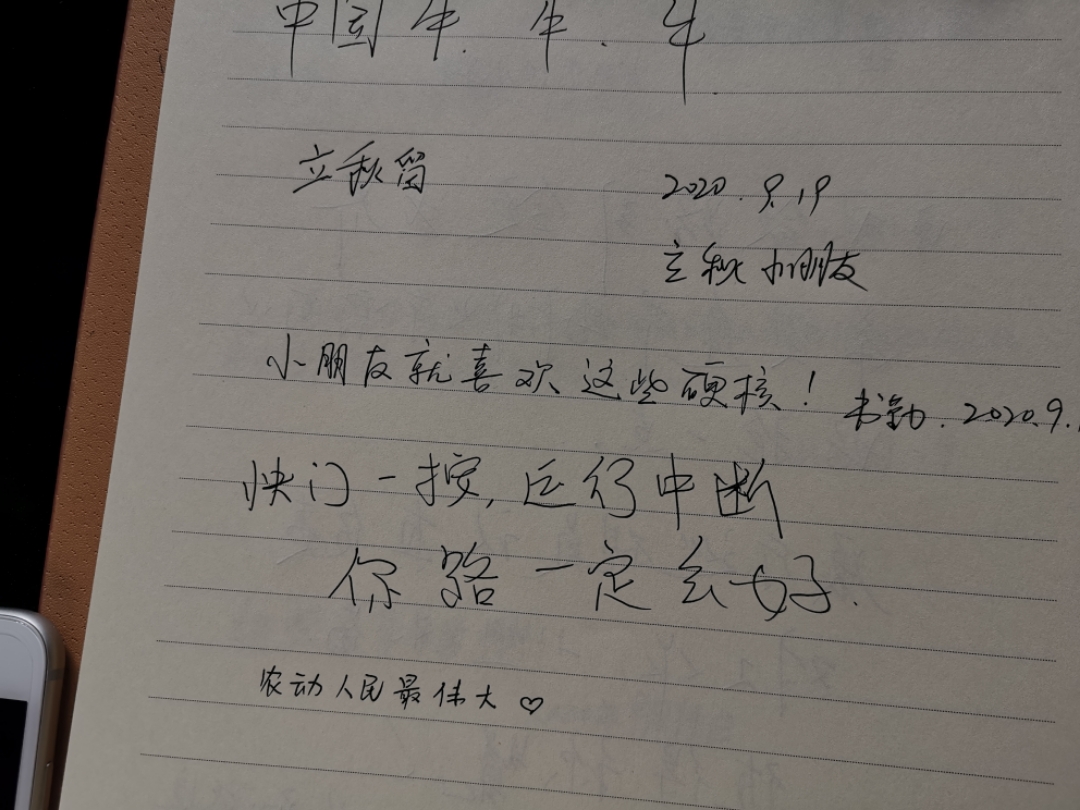 中国牛.牛.牛.
立秋留
2020.9.19
立秋小朋友
小朋友就喜欢这些硬核! 2020.9.
快门一按,运行中断
你路一定会好.
农动人民最伟大♡